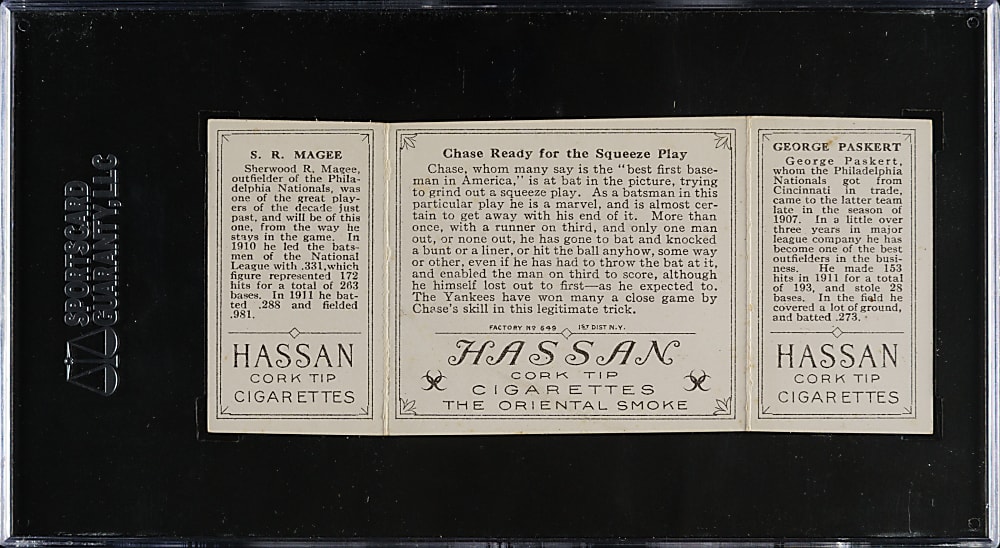 SPORTSCARD
GUARANTY, LLC
S. R. MAGEE
Sherwood R. Magee,
outfielder of the Phila-
delphia Nationals, was
one of the great play-
ers of the decade just
past, and will be of this
one, from the way he
stays in the game. In
1910 he led the bats-
men of the National
League with .331, which
figure represented 172
hits for a total of 263
bases. In 1911 he bat-
ted .288 and fielded
.981.
HASSAN
CORK TIP
CIGARETTES
Chase Ready for the Squeeze Play
Chase, whom many say is the "best first base-
man in America," is at bat in the picture, trying
to grind out a squeeze play. As a batsman in this
particular play he is a marvel, and is almost cer-
tain to get away with his end of it. More than
once, with a runner on third, and only one man
out, or none out, he has gone to bat and knocked
a bunt or a liner, or hit the ball anyhow, some way
or other, even if he has had to throw the bat at it,
and enabled the man on third to score, although
he himself lost out to first—as he expected to.
The Yankees have won many a close game by
Chase's skill in this legitimate trick.
FACTORY Nº 649 1ST DIST N.Y.
HASSAN
CORK TIP
CIGARETTES
THE ORIENTAL SMOKE
GEORGE PASKERT
George Paskert,
whom the Philadelphia
Nationals got from
Cincinnati in trade,
came to the latter team
late in the season of
1907. In a little over
three years in major
league company he has
become one of the best
outfielders in the busi-
ness. He made 153
hits in 1911 for a total
of 193, and stole 28
bases. In the field he
covered a lot of ground,
and batted .273.
HASSAN
CORK TIP
CIGARETTES